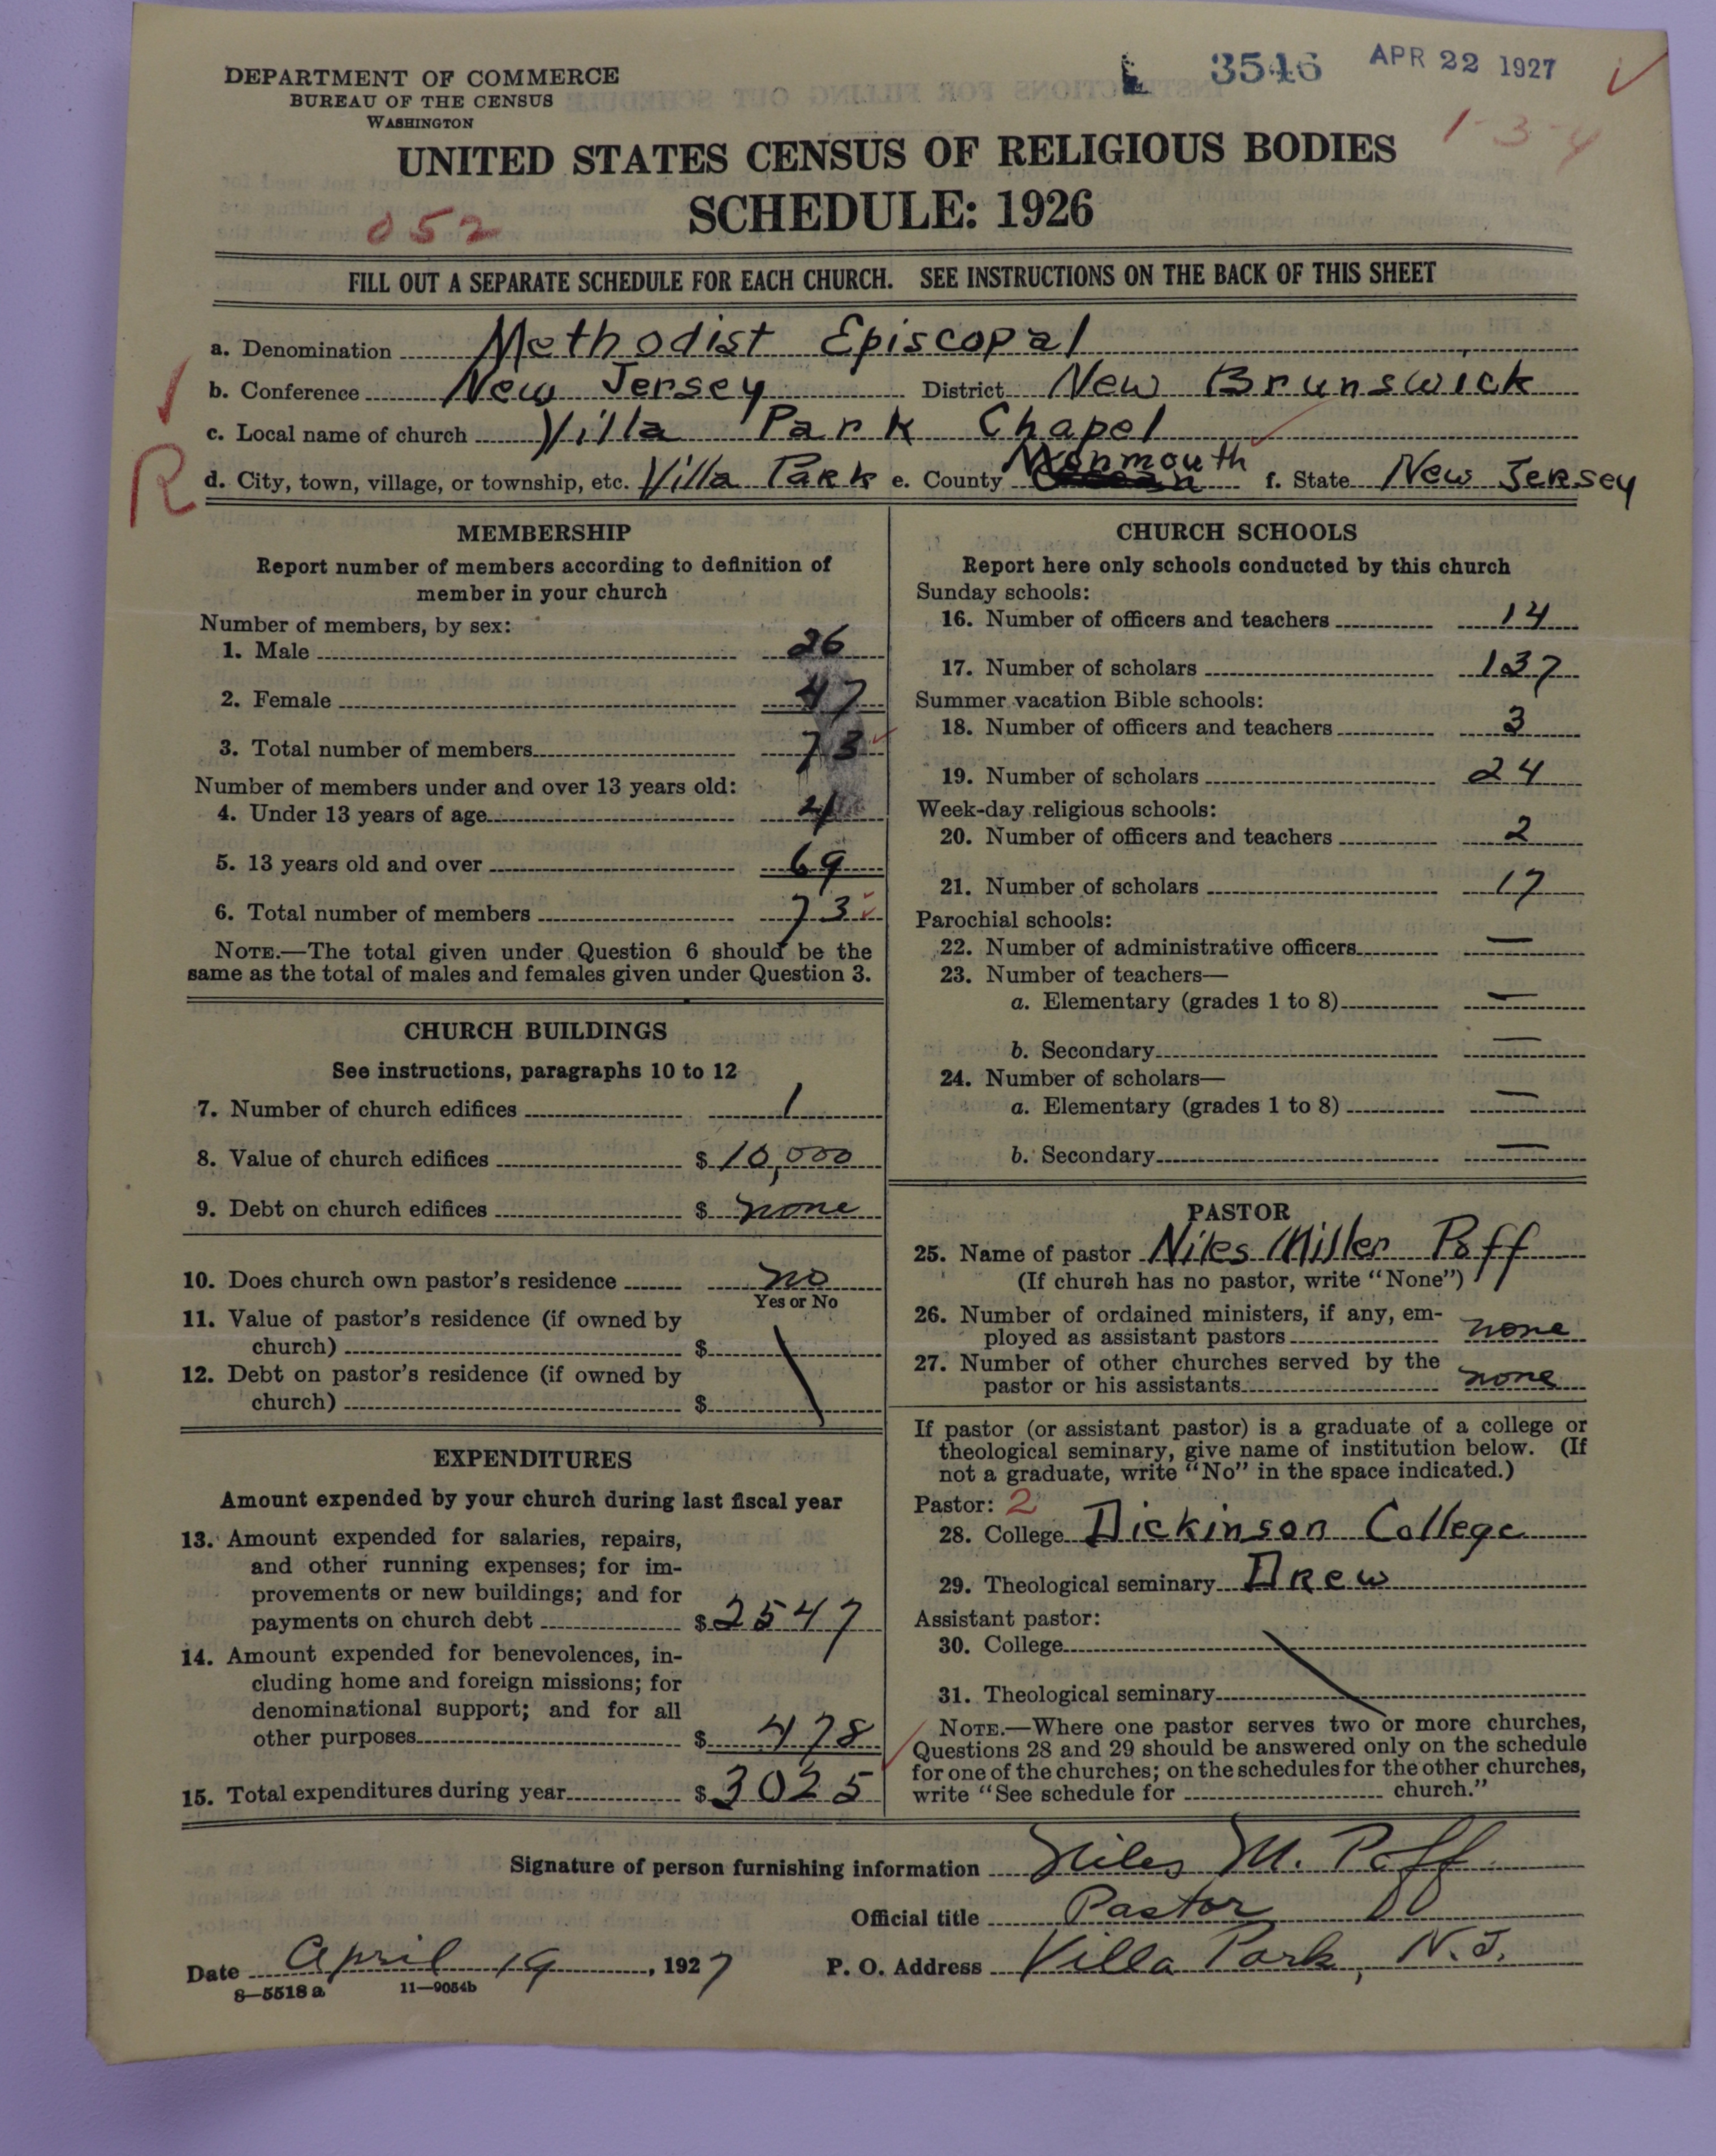 3546 APR 22 1927
DEPARTMENT OF COMMERCE
BUREAU OF THE CENSUS
WASHINGTON
1-3-4
UNITED STATES CENSUS OF RELIGIOUS BODIES
SCHEDULE: 1926
052
FILL OUT A SEPARATE SCHEDULE FOR EACH CHURCH. SEE INSTRUCTIONS ON THE BACK OF THIS SHEET
a. Denomination Methodist Episcopal
b. Conference New Jersey District New Brunswick
c. Local name of church Villa Park Chapel
R
d. City, town, village, or township, etc. Villa Park e. County Monmouth f. State New Jersey
MEMBERSHIP
Report number of members according to definition of
member in your church
Number of members, by sex:
1. Male 26
2. Female 47
3. Total number of members 73
Number of members under and over 13 years old:
4. Under 13 years of age 4
5. 13 years old and over 69
6. Total number of members 73
NOTE.—The total given under Question 6 should be the
same as the total of males and females given under Question 3.
CHURCH BUILDINGS
See instructions, paragraphs 10 to 12
7. Number of church edifices 1
8. Value of church edifices $ 10,000
9. Debt on church edifices $ none
10. Does church own pastor's residence no
Yes or No
11. Value of pastor's residence (if owned by
church) $
12. Debt on pastor's residence (if owned by
church) $
EXPENDITURES
Amount expended by your church during last fiscal year
13. Amount expended for salaries, repairs,
and other running expenses; for im-
provements or new buildings; and for
payments on church debt $ 2547
14. Amount expended for benevolences, in-
cluding home and foreign missions; for
denominational support; and for all
other purposes $ 478
15. Total expenditures during year $ 3025
CHURCH SCHOOLS
Report here only schools conducted by this church
Sunday schools:
16. Number of officers and teachers 14
17. Number of scholars 137
Summer vacation Bible schools:
18. Number of officers and teachers 3
19. Number of scholars 24
Week-day religious schools:
20. Number of officers and teachers 2
21. Number of scholars 17
Parochial schools:
22. Number of administrative officers —
23. Number of teachers—
a. Elementary (grades 1 to 8) —
b. Secondary —
24. Number of scholars—
a. Elementary (grades 1 to 8) —
b. Secondary —
PASTOR
25. Name of pastor Niles Miller Poff
(If church has no pastor, write "None")
26. Number of ordained ministers, if any, em-
ployed as assistant pastors none
27. Number of other churches served by the
pastor or his assistants none
If pastor (or assistant pastor) is a graduate of a college or
theological seminary, give name of institution below. (If
not a graduate, write "No" in the space indicated.)
Pastor: 2
28. College Dickinson College
29. Theological seminary Drew
Assistant pastor:
30. College
31. Theological seminary
NOTE.—Where one pastor serves two or more churches,
Questions 28 and 29 should be answered only on the schedule
for one of the churches; on the schedules for the other churches,
write "See schedule for church."
Signature of person furnishing information Niles M. Poff
Official title Pastor
Date April 19, 1927 P. O. Address Villa Park, N.J.
8—5518a 11—9054b